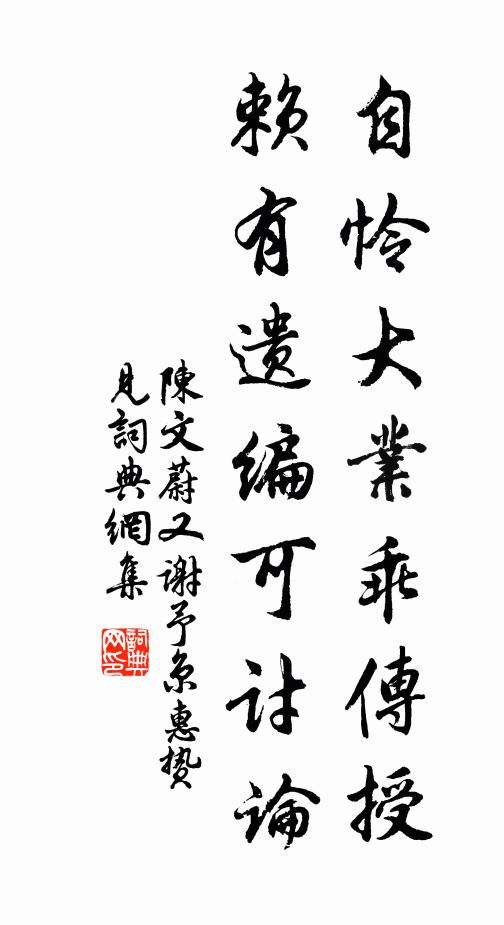 自怜大業乖傳授
賴有遺編可討論
陳文蔚又謝予京惠贄
見詞典網集
詞典网印